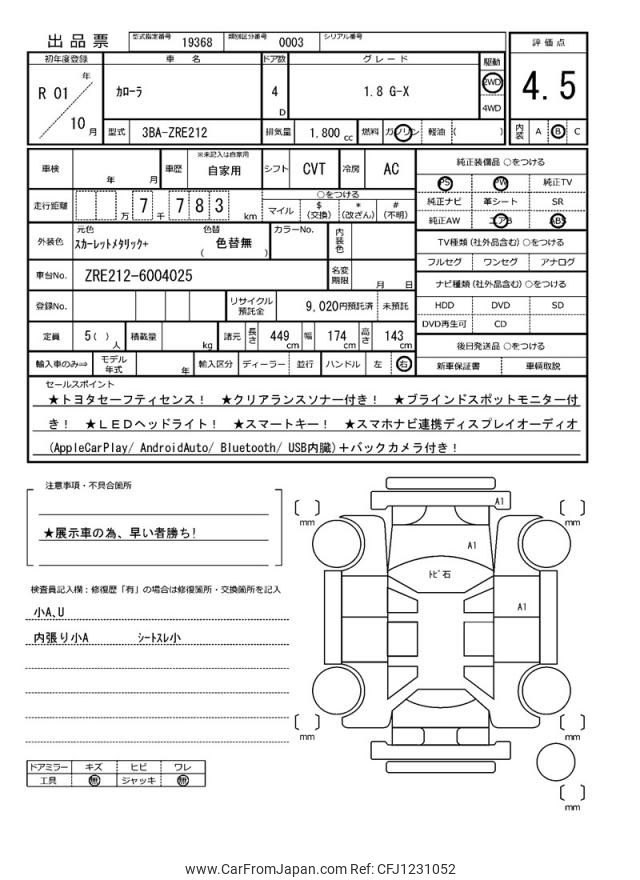 出品票 型式指定番号 19368 類別区分番号 0003 シリアル番号
評価点
4.5
内装 A B C
初年度登録 車名 ドア数 グレード 駆動
R 01 年 10 月 カローラ 4 D 1.8 G-X 2WD 4WD
型式 3BA-ZRE212 排気量 1.800 cc 燃料 ガソリン 軽油 ( )
車検 年 月 車歴 ※未記入は自家用 自家用 シフト CVT 冷房 AC
走行距離 万 7 千 7 8 3 km ○をつける マイル $ (交換) * (改ざん) # (不明)
外装色 元色 スカーレットメタリック+ 色替 ( 色替無 ) カラーNo. 内装色
車台No. ZRE212-6004025 名変期限 月 日
登録No. リサイクル預託金 9,020円預託済 未預託
定員 5( ) 人 積載量 kg 諸元 長さ 449 cm 幅 174 cm 高さ 143 cm
輸入車のみ⇒ モデル年式 年 輸入区分 ディーラー 並行 ハンドル 左 右
純正装備品 ○をつける
PS PW 純正TV
純正ナビ 革シート SR
純正AW エアB ABS
TV種類 (社外品含む) ○をつける
フルセグ ワンセグ アナログ
ナビ種類 (社外品含む) ○をつける
HDD DVD SD
DVD再生可 CD
後日発送品 ○をつける
新車保証書 車輌取説
セールスポイント
★トヨタセーフティセンス! ★クリアランスソナー付き! ★ブラインドスポットモニター付
き! ★LEDヘッドライト! ★スマートキー! ★スマホナビ連携ディスプレイオーディオ
(AppleCarPlay/ AndroidAuto/ Bluetooth/ USB内臓)+バックカメラ付き!
注意事項・不具合箇所
★展示車の為、早い者勝ち!
検査員記入欄:修復歴「有」の場合は修復箇所・交換箇所を記入
小A、U
内張り小A シートスレ小
ドアミラー キズ ヒビ ワレ
工具 無 ジャッキ 無
A1
mm
mm
A1
トビ石
A1
mm
mm
mm
www.CarFromJapan.com Ref: CFJ1231052